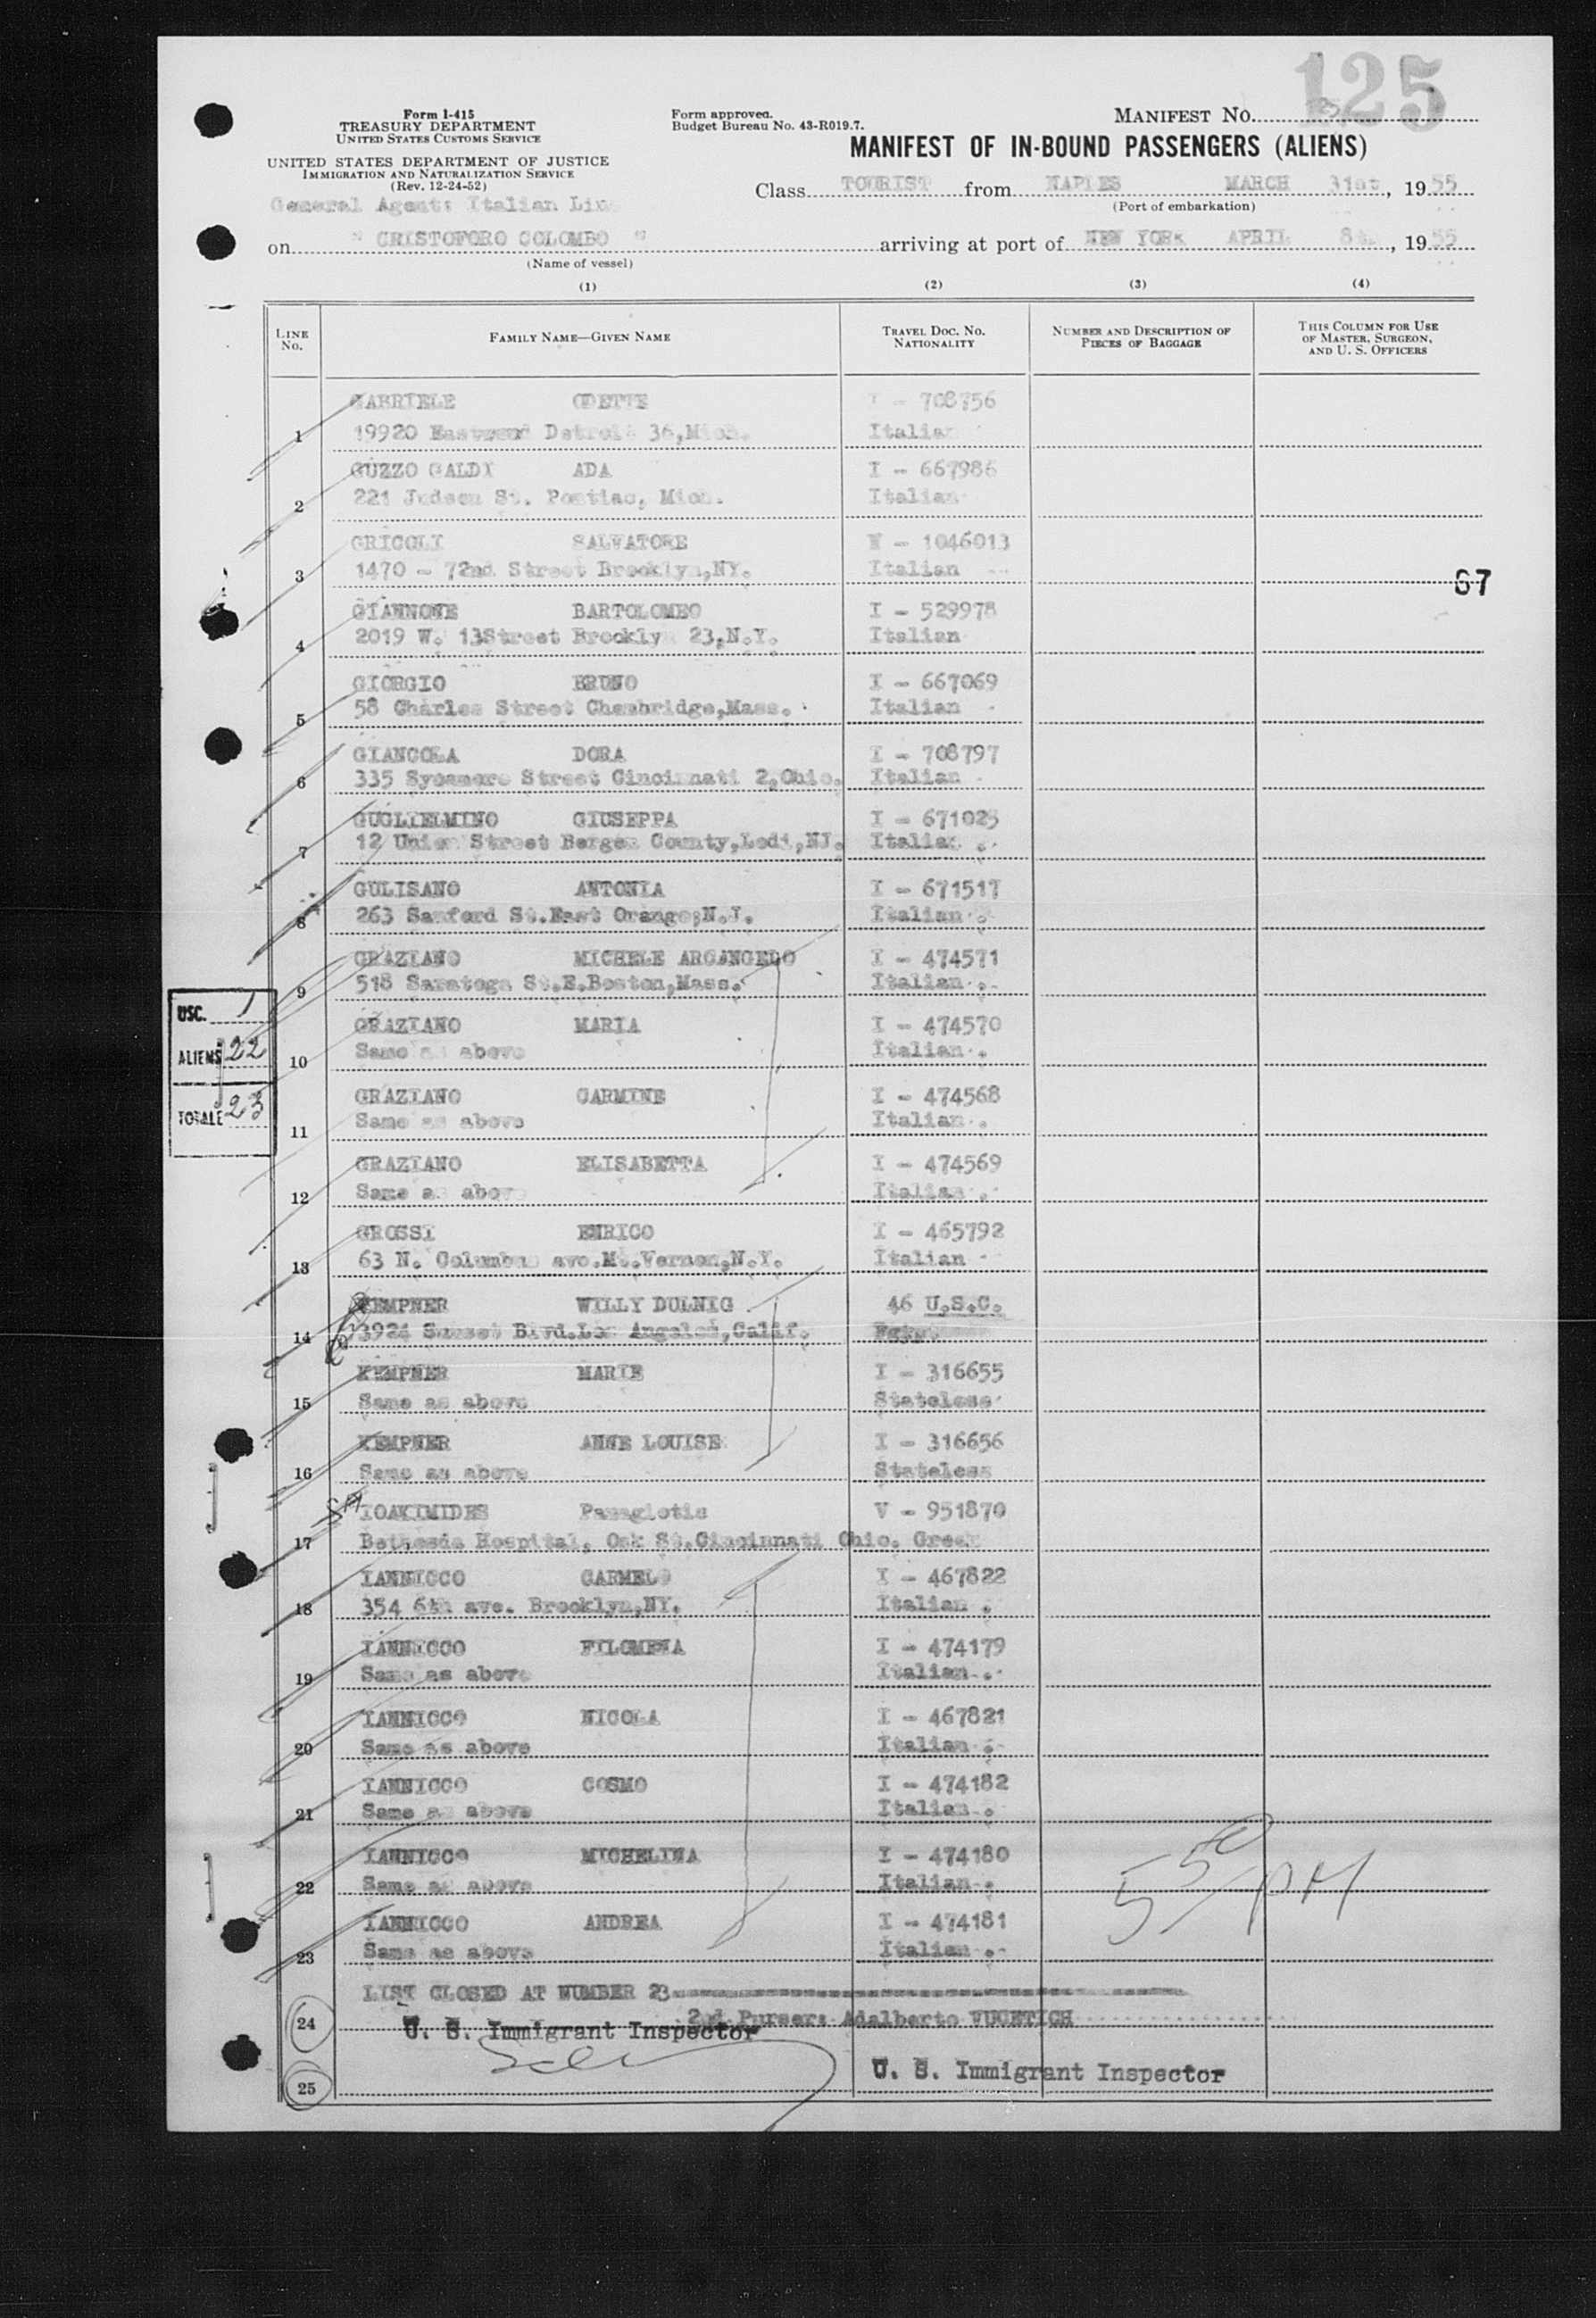 125
Form I-415
TREASURY DEPARTMENT
UNITED STATES CUSTOMS SERVICE
UNITED STATES DEPARTMENT OF JUSTICE
IMMIGRATION AND NATURALIZATION SERVICE
(Rev. 12-24-52)
General Agent: Italian Line
Form approved.
Budget Bureau No. 43-R019.7.
MANIFEST NO.
MANIFEST OF IN-BOUND PASSENGERS (ALIENS)
Class TOURIST from NAPLES MARCH 31st, 1955
(Port of embarkation)
on " CRISTOFORO COLOMBO " arriving at port of NEW YORK APRIL 8th, 1955
(Name of vessel)
(1) (2) (3) (4)
LINE No. FAMILY NAME—GIVEN NAME TRAVEL DOC. NO. NATIONALITY NUMBER AND DESCRIPTION OF PIECES OF BAGGAGE THIS COLUMN FOR USE OF MASTER, SURGEON, AND U. S. OFFICERS
GABRIELE ODETTE I - 708756
1 19920 Eastwood Detroit 36,Mich. Italian
GUZZO GALDI ADA I - 667986
2 221 Judson St. Pontiac, Mich. Italian
GRICOLI SALVATORE V - 1046013
3 1470 - 72nd Street Brooklyn,NY. Italian
67
GIANNONE BARTOLOMEO I - 529978
4 2019 W. 13Street Brooklyn 23,N.Y. Italian
GIORGIO BRUNO I - 667069
5 58 Charles Street Chambridge,Mass. Italian
GIANCOLA DORA I - 708797
6 335 Sycamore Street Cincinnati 2,Ohio. Italian
GUGLIELMINO GIUSEPPA I - 671025
7 12 Union Street Bergen County,Lodi,NJ. Italian.
GULISANO ANTONIA I - 671517
8 263 Sanford St.East Orange,N.J. Italian.
GRAZIANO MICHELE ARCANGELO I - 474571
9 518 Saratoga St.E.Boston,Mass. Italian.
USC. 1
GRAZIANO MARIA I - 474570
ALIENS 22
10 Same as above Italian.
GRAZIANO CARMINE I - 474568
TOTALE 23
11 Same as above Italian.
GRAZIANO ELISABETTA I - 474569
12 Same as above Italian.
GROSSI ENRICO I - 465792
13 63 N. Columbus ave.Mt.Vernon,N.Y. Italian
KEMPNER WILLY DOLNIG 46 U.S.C.
14 3924 Sunset Blvd.Los Angeles,Calif.
KEMPNER MARIE I - 316655
15 Same as above Stateless
KEMPNER ANNE LOUISE I - 316656
16 Same as above Stateless
IOAKIMIDES Panagiotis V - 951870
17 Bethesda Hospital, Oak St.Cincinnati Ohio. Greek
IANNICCO CARMELO I - 467822
18 354 6th ave. Brooklyn,NY. Italian.
IANNICCO FILOMENA I - 474179
19 Same as above Italian.
IANNICCO NICOLA I - 467821
20 Same as above Italian.
IANNICCO COSMO I - 474182
21 Same as above Italian.
IANNICCO MICHELINA I - 474180
22 Same as above Italian.
55 PM
IANNICCO ANDREA I - 474181
23 Same as above Italian.
LIST CLOSED AT NUMBER 23
24 2nd Purser: Adalberto VUCETICH
U. S. Immigrant Inspector
25 U. S. Immigrant Inspector